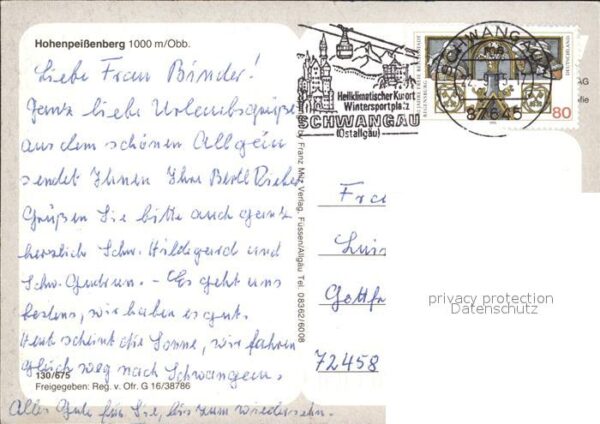 Hohenpeißenberg 1000 m/Obb.
Liebe Frau Binder!
Ganz liebe Urlaubsgrüße
aus dem schönen Allgäu
sendet Ihnen Ihre Bertl Rieber
Grüßen Sie bitte auch ganz
herzlich Schw. Hildegard und
Schw. Gudrun. - Es geht uns
bestens, wir haben es gut.
Heut scheint die Sonne, wir fahren
gleich weg nach Schwangau.
130/675
Freigegeben: Reg. v. Ofr. G 16/38786
Alles Gute für Sie, bis zum wiedersehn.
by Franz Milz Verlag, Füssen/Allgäu Tel. 08362/6008
Heilklimatischer Kurort
Wintersportplatz
SCHWANGAU
(Ostallgäu)
SCHWANGAU
87645
REGENSBURG
DEUTSCHLAND
80
Fra
Luis
Gottfr
72458
privacy protection
Datenschutz